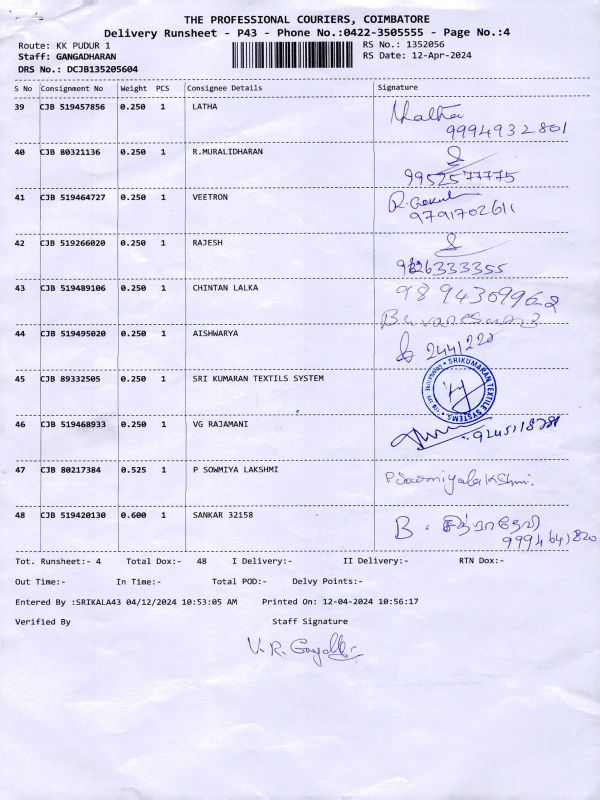 THE PROFESSIONAL COURIERS, COIMBATORE
Delivery Runsheet - P43 - Phone No.:0422-3505555 - Page No.:4
Route: KK PUDUR 1 RS No.: 1352056
Staff: GANGADHARAN RS Date: 12-Apr-2024
DRS No.: DCJB135205604
S No Consignment No Weight PCS Consignee Details Signature
39 CJB 519457856 0.250 1 LATHA
9994932801
40 CJB 80321136 0.250 1 R.MURALIDHARAN
9952577775
41 CJB 519464727 0.250 1 VEETRON R. Gokul
9791702611
42 CJB 519266020 0.250 1 RAJESH
333355
43 CJB 519489106 0.250 1 CHINTAN LALKA 9894309962
44 CJB 519495020 0.250 1 AISHWARYA
45 CJB 89332505 0.250 1 SRI KUMARAN TEXTILS SYSTEM SRIKUMARAN TEXTILE SYSTEMS
46 CJB 519468933 0.250 1 VG RAJAMANI
47 CJB 80217384 0.525 1 P SOWMIYA LAKSHMI P Sowmiyalakshmi.
48 CJB 519420130 0.600 1 SANKAR 32158 B.
9994641820
Tot. Runsheet:- 4 Total Dox:- 48 I Delivery:- II Delivery:- RTN Dox:-
Out Time:- In Time:- Total POD:- Delvy Points:-
Entered By :SRIKALA43 04/12/2024 10:53:05 AM Printed On: 12-04-2024 10:56:17
Verified By Staff Signature
V. R.